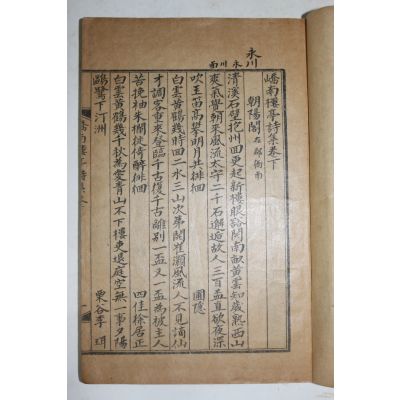 永川
永川面
嶠南樓亭詩集卷下
朝陽閣 在縣衙南
清溪石壁抱州回更起新樓眼豁開南畝黃雲知歲熟西山
爽氣覺朝來風流太守二千石邂逅故人三百盃直欲夜深
吹玉笛高攀明月共徘徊 圃隱
白雲黃鶴幾時回二水三山次第開崔灝風流人不見謫仙
才調客重來登臨千古復千古離別一盃又一盃為被主人
苦挽袖朱欄徙倚醉徘徊 四佳徐居正
白雲黃鶴幾千秋為愛青山不下樓吏退庭空無一事夕陽
鷗鷺下汀洲 栗谷李珥